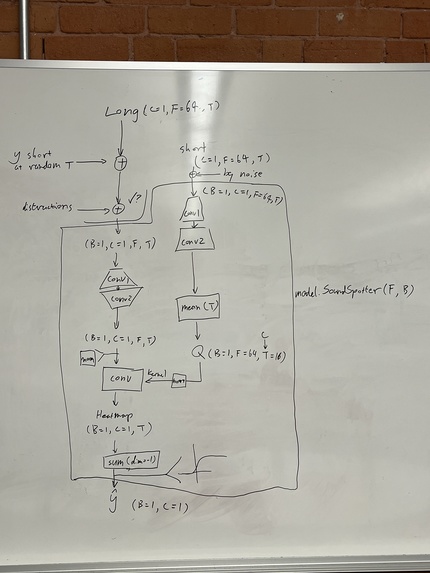 Long (C=1, F=64, T)
y short
at random T
short
(C=1, F=64, T)
bg noise
distructions
√?
(B=1, C=1, F=64, T)
(B=1, C=1, F, T)
conv1
conv2
conv1
conv2
mean(T)
model.SoundSpotter (F, B)
(B=1, C=1, F, T)
C
Q (B=1, F=64, T=16)
norm
conv
kernel
norm
Heatmap
(B=1, C=1, T)
sum(dim=-1)
ŷ (B=1, C=1)